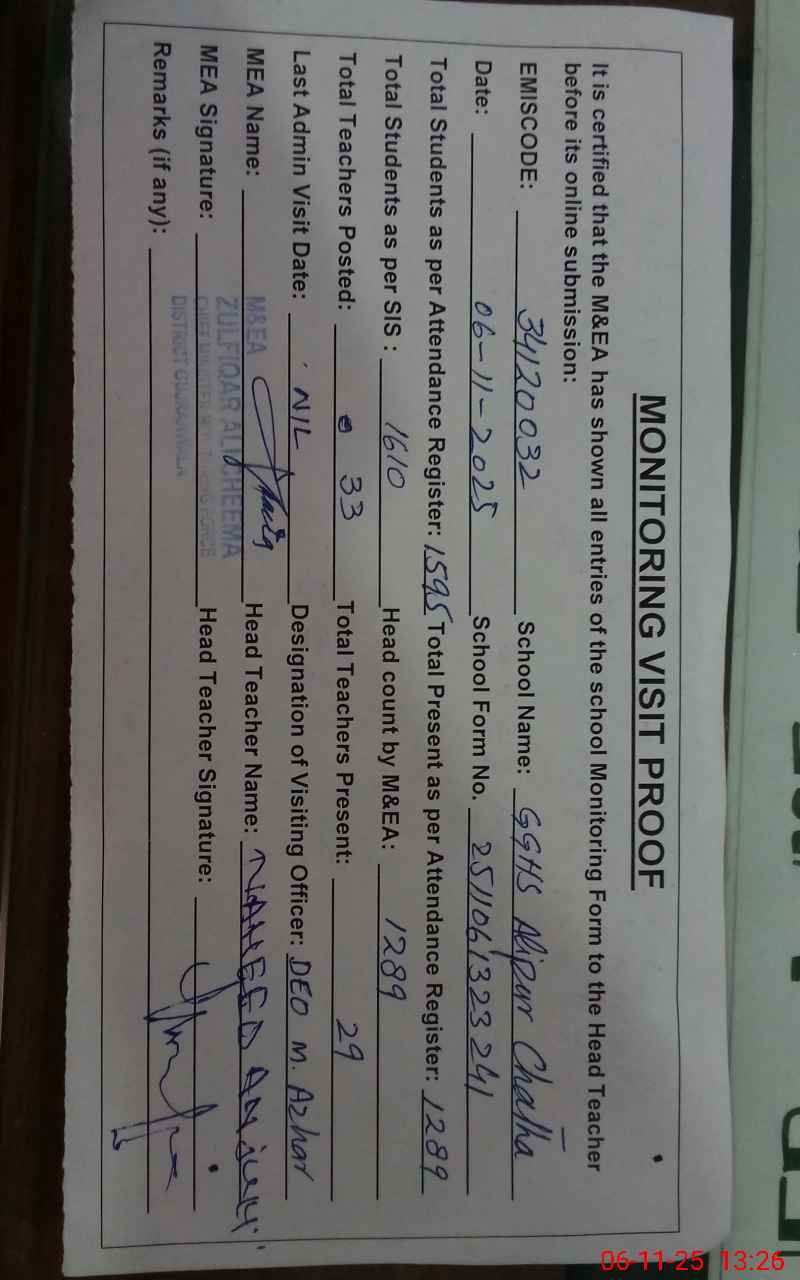 MONITORING VISIT PROOF
It is certified that the M&EA has shown all entries of the school Monitoring Form to the Head Teacher
before its online submission:
EMISCODE: 34120032 School Name: GGHS Alipur Chatha
Date: 06-11-2025 School Form No. 2511061323241
Total Students as per Attendance Register: 1595 Total Present as per Attendance Register: 1289
Total Students as per SIS : 1610 Head count by M&EA: 1289
Total Teachers Posted: 33 Total Teachers Present: 29
Last Admin Visit Date: NIL Designation of Visiting Officer: DEO M. Azhar
MEA Name: Head Teacher Name:
MEA Signature: Head Teacher Signature:
Remarks (if any):
M&EA
ZULFIQAR ALI CHEEMA
CHIEF MINISTER MONITORING FORCE
DISTRICT GUJRANWALA
06-11-25 13:26